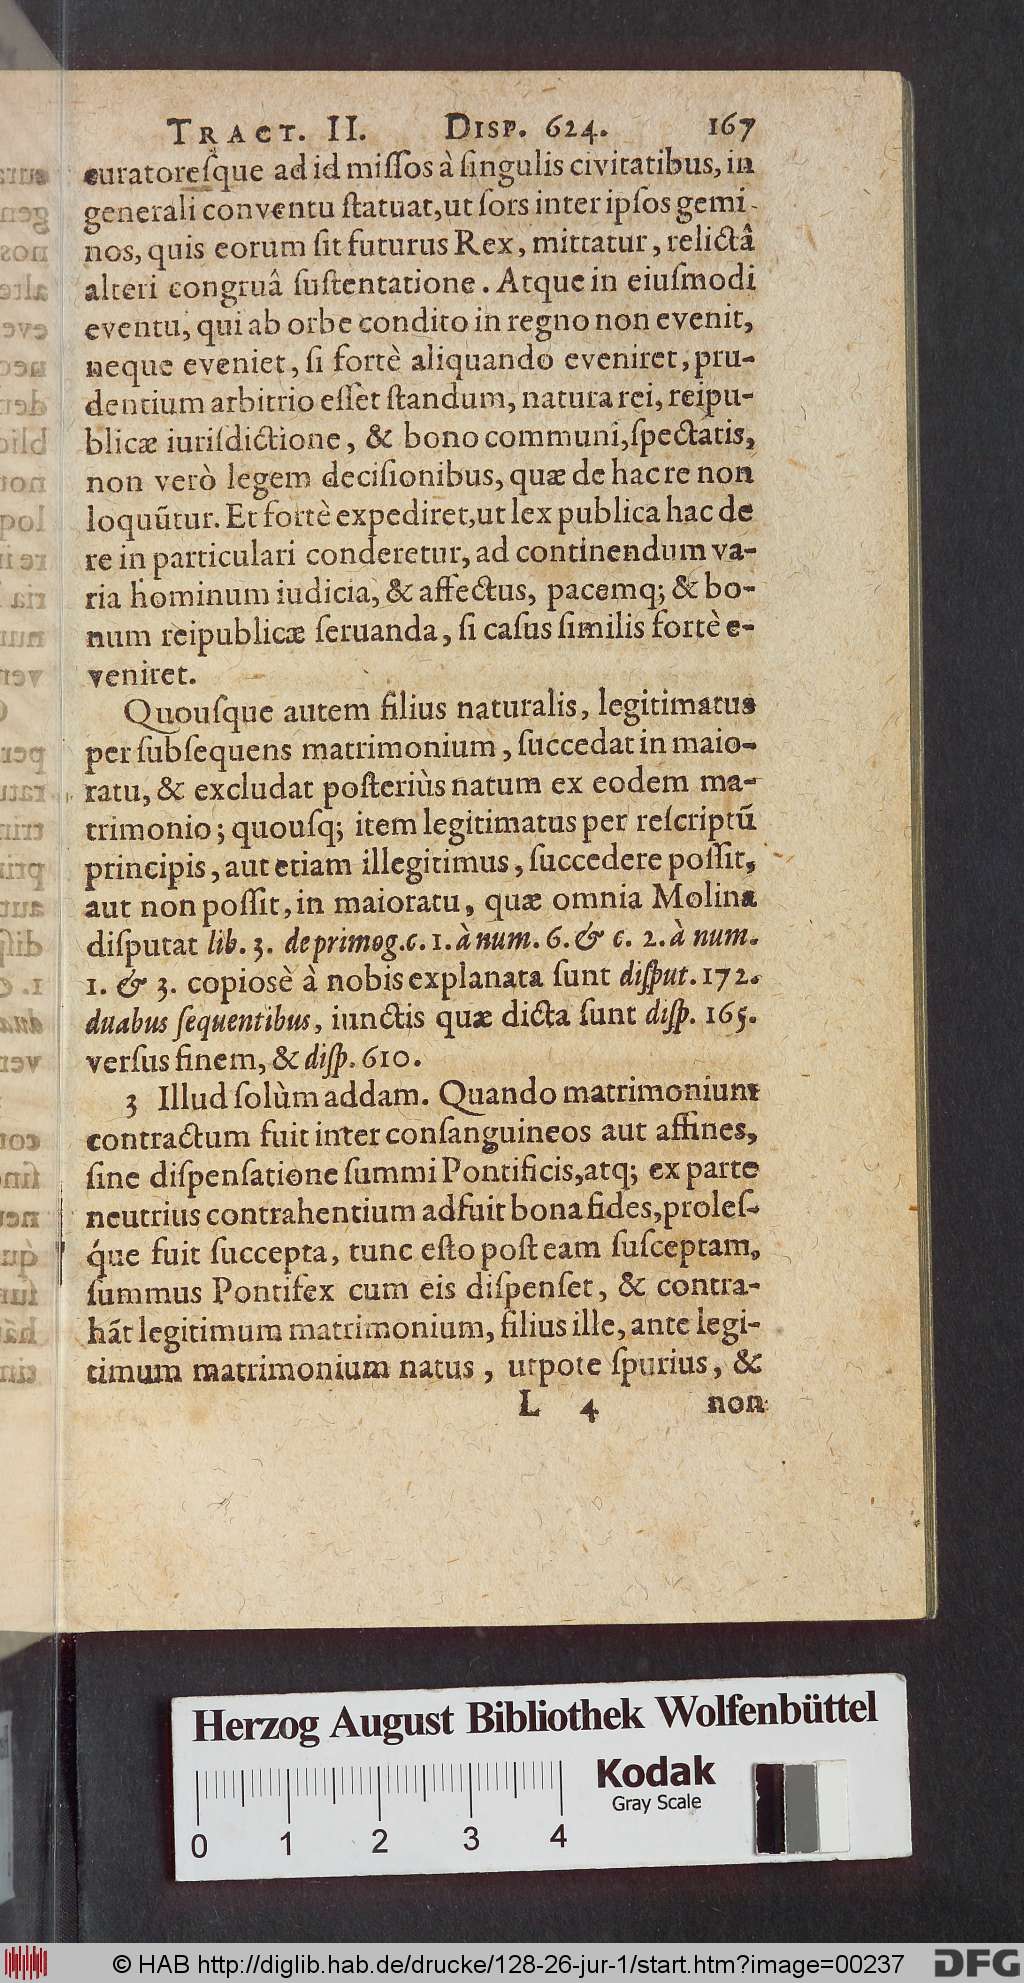 TRACT. II. DISP. 624. 167
curatoreſque ad id miſſos à ſingulis civitatibus, in
generali conventu ſtatuat, ut ſors inter ipſos gemi-
nos, quis eorum ſit futurus Rex, mittatur, relictâ
alteri congruâ ſuſtentatione. Atque in eiuſmodi
eventu, qui ab orbe condito in regno non evenit,
neque eveniet, ſi fortè aliquando eveniret, pru-
dentium arbitrio eſſet ſtandum, natura rei, reipu-
blicæ iuriſdictione, & bono communi, ſpectatis,
non verò legem deciſionibus, quæ de hac re non
loquũtur. Et fortè expediret, ut lex publica hac de
re in particulari conderetur, ad continendum va-
ria hominum iudicia, & affectus, pacemq; & bo-
num reipublicæ ſeruanda, ſi caſus ſimilis fortè e-
veniret.
Quouſque autem filius naturalis, legitimatus
per ſubſequens matrimonium, ſuccedat in maio-
ratu, & excludat poſteriùs natum ex eodem ma-
trimonio; quouſq; item legitimatus per reſcriptũ
principis, aut etiam illegitimus, ſuccedere poſſit,
aut non poſſit, in maioratu, quæ omnia Molina
diſputat lib. 3. de primog. c. 1. à num. 6. & c. 2. à num.
1. & 3. copiosè à nobis explanata ſunt diſput. 172.
duabus ſequentibus, iunctis quæ dicta ſunt diſp. 165.
verſus finem, & diſp. 610.
3 Illud ſolùm addam. Quando matrimonium
contractum fuit inter conſanguineos aut affines,
ſine diſpenſatione ſummi Pontificis, atq; ex parte
neutrius contrahentium adfuit bona fides, proleſ-
q́ue fuit ſuccepta, tunc eſto poſt eam ſuſceptam,
ſummus Pontifex cum eis diſpenſet, & contra-
hãt legitimum matrimonium, filius ille, ante legi-
timum matrimonium natus, utpote ſpurius, &
L 4 non
Herzog August Bibliothek Wolfenbüttel
Kodak
Gray Scale
0 1 2 3 4
© HAB http://diglib.hab.de/drucke/128-26-jur-1/start.htm?image=00237
DFG